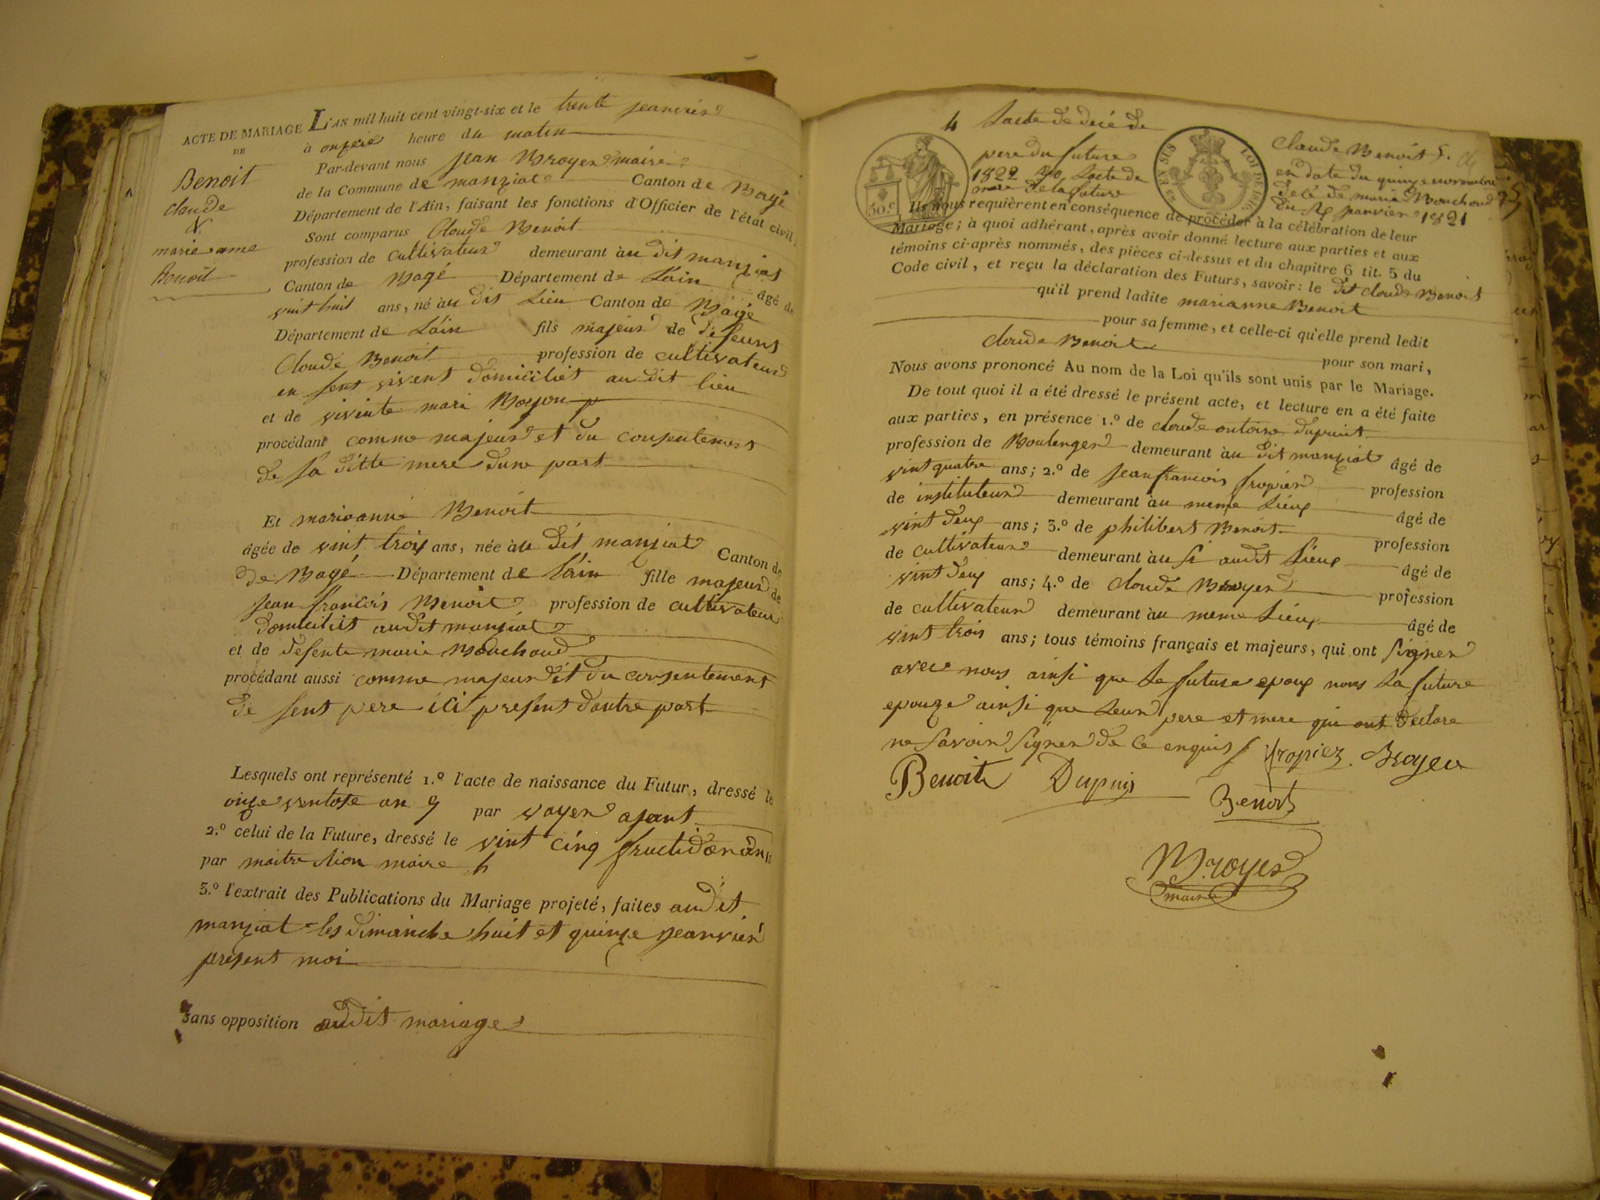 ACTE DE MARIAGE
DE
Benoit
claude
&
marie anne
Benoit
L'AN mil huit cent vingt-six et le trente jeanvier
à onzere heure du matin
Par-devant nous jean Broyer maire
de la Commune de manziat Canton de Bagé
Département de l'Ain, faisant les fonctions d'Officier de l'état civil,
Sont comparus Claude Benoit
profession de cultivateur demeurant àu dit manziat
Canton de Bagé Département de L'ain âgé de
vint huit ans, né àu dit Lieu Canton de Bagé
Département de L'ain fils majeur de defeunt
Claude Benoit profession de cultivateur
en sont vivent domicilièt audit lieu
et de vivente mari Boyon
procédant comme majeur et du consentement
de sa ditte mere dune part
Et marioanne Benoit
âgée de vint troix ans, née àu dit manziat Canton de
de Bagé Département de l'ain fille majeur de
jean francois Benoit profession de cultivateur
domicilièt audit manziat
et de defente marie Bouchoud
procédant aussi comme majeur et du consentement
de sent pere ici present dautre part
Lesquels ont représenté 1.º l'acte de naissance du Futur, dressé le
onze ventose an 9 par voyer ajant
2.º celui de la Future, dressé le vint cinq fructidor an 11
par maitre Lion maire
3.º l'extrait des Publications du Mariage projeté, faites audit
manziat les dimanche huit et quinze jeanvier
present moi
Sans opposition audit mariage
4 Lacte de decé de
pere du future
1822
mere de la future
50.c
EN SUS
LOI DE 1816
claude Benoit 5.
en date du quinze novembre
decé de marie Bouchoud
du 25 janvier 1821
Ils nous requièrent en conséquence de procéder à la célébration de leur
Mariage; à quoi adhérant, après avoir donné lecture aux parties et aux
témoins ci-après nommés, des pièces ci-dessus et du chapitre 6 tit. 5 du
Code civil, et reçu la déclaration des Futurs, savoir: le dit claude Benoit
qu'il prend ladite marianne Benoit
pour sa femme, et celle-ci qu'elle prend ledit
claude Benoit pour son mari,
Nous avons prononcé Au nom de la Loi qu'ils sont unis par le Mariage.
De tout quoi il a été dressé le présent acte, et lecture en a été faite
aux parties, en présence 1.º de claude antoine dupuit
profession de Boulenger demeurant àu dit manziat âgé de
vint quatre ans; 2.º de jean francois fropier profession
de instituteur demeurant àu meme Lieux âgé de
vint deux ans; 3.º de philibert Benoit profession
de cultivateur demeurant àu si audit Lieux âgé de
vint deux ans; 4.º de claude Broyer profession
de cultivateur demeurant àu meme Lieux âgé de
vint trois ans; tous témoins français et majeurs, qui ont signer
avec nous ainsi que Le future epoux nons La future
epouze ainsi que Leur pere et mere qui ont declare
ne savoir signer de ce enquis fropiez. Broyer
Benoit Dupuis Benoit
Broyer
maire